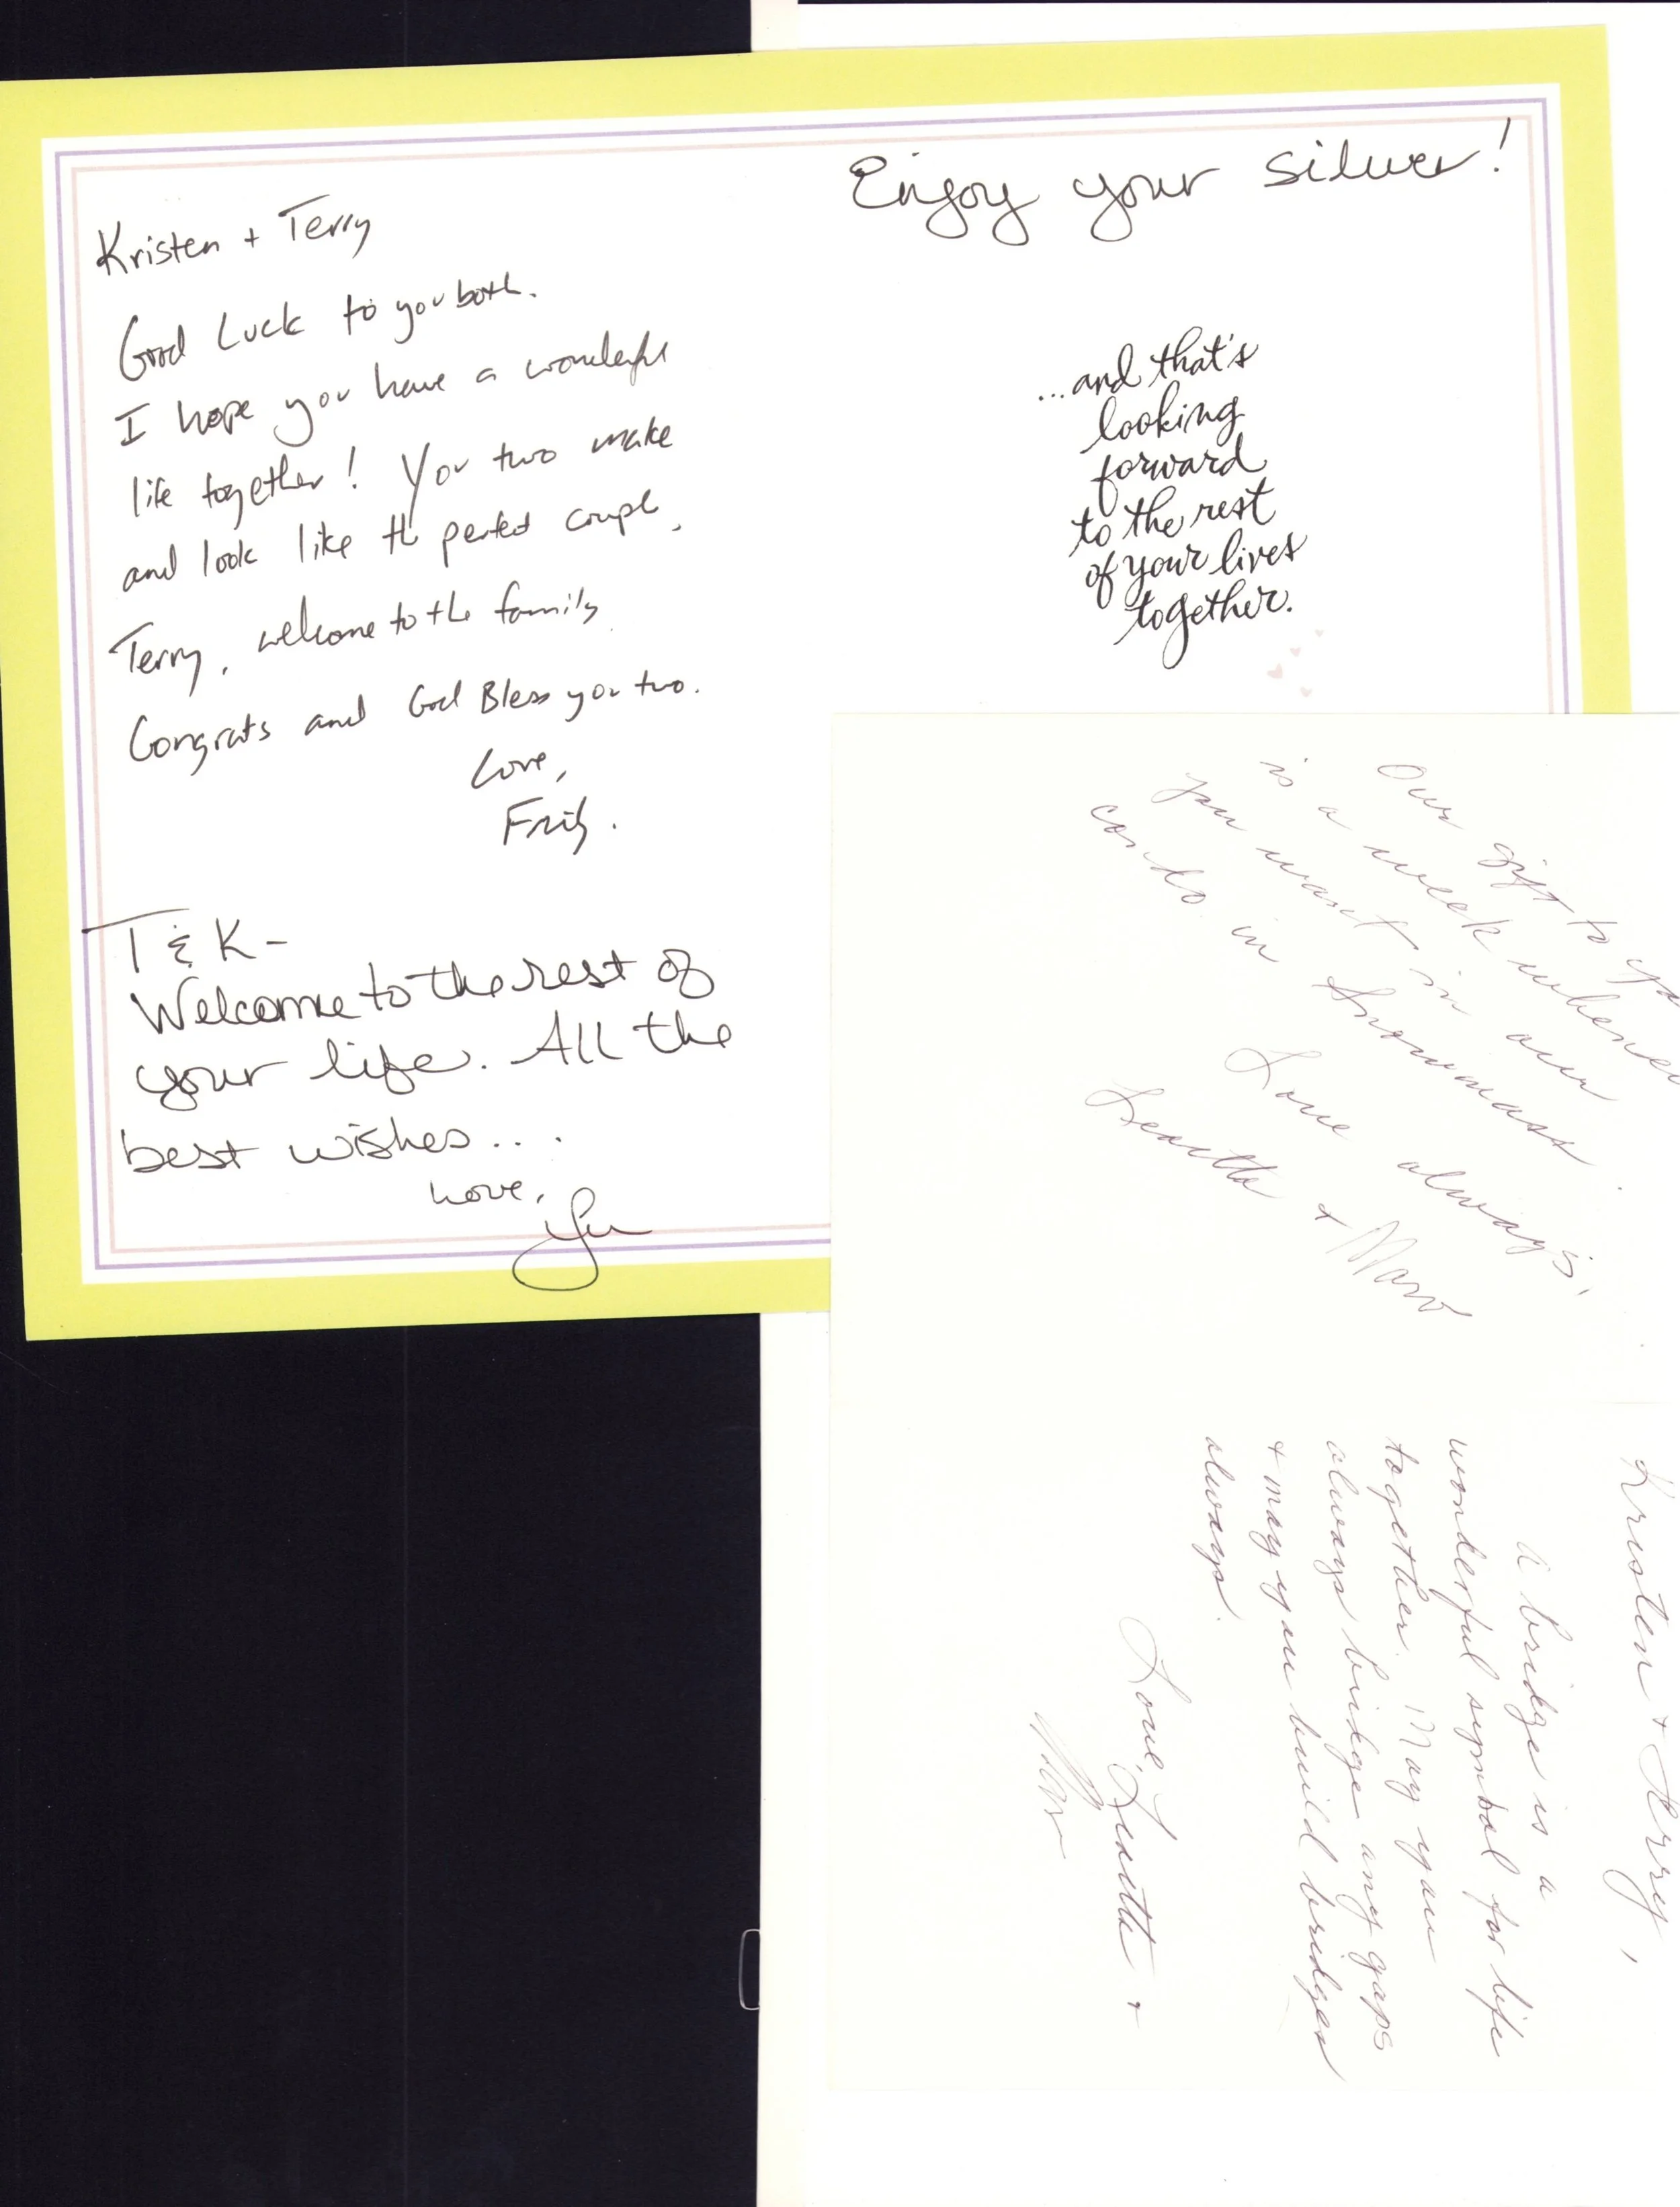 Kristen + Terry
Good Luck to you both.
I hope you have a wonderful
life together! You two make
and look like the perfect couple.
Terry, welcome to the family.
Congrats and God Bless you two.
Love,
T & K-
Welcome to the rest of
your life. All the
best wishes....
Love,
Enjoy your silver!
...and that's
looking
forward
to the rest
of your lives
together.
Our gift to
is a week
you want in our
condo in Snowmass.
Love always,
+ Marv
Kristen + Terry,
A bridge is a
wonderful symbol for life
together. May you
always bridge any gaps
+ may you build bridges
always.
Love, +
Marv